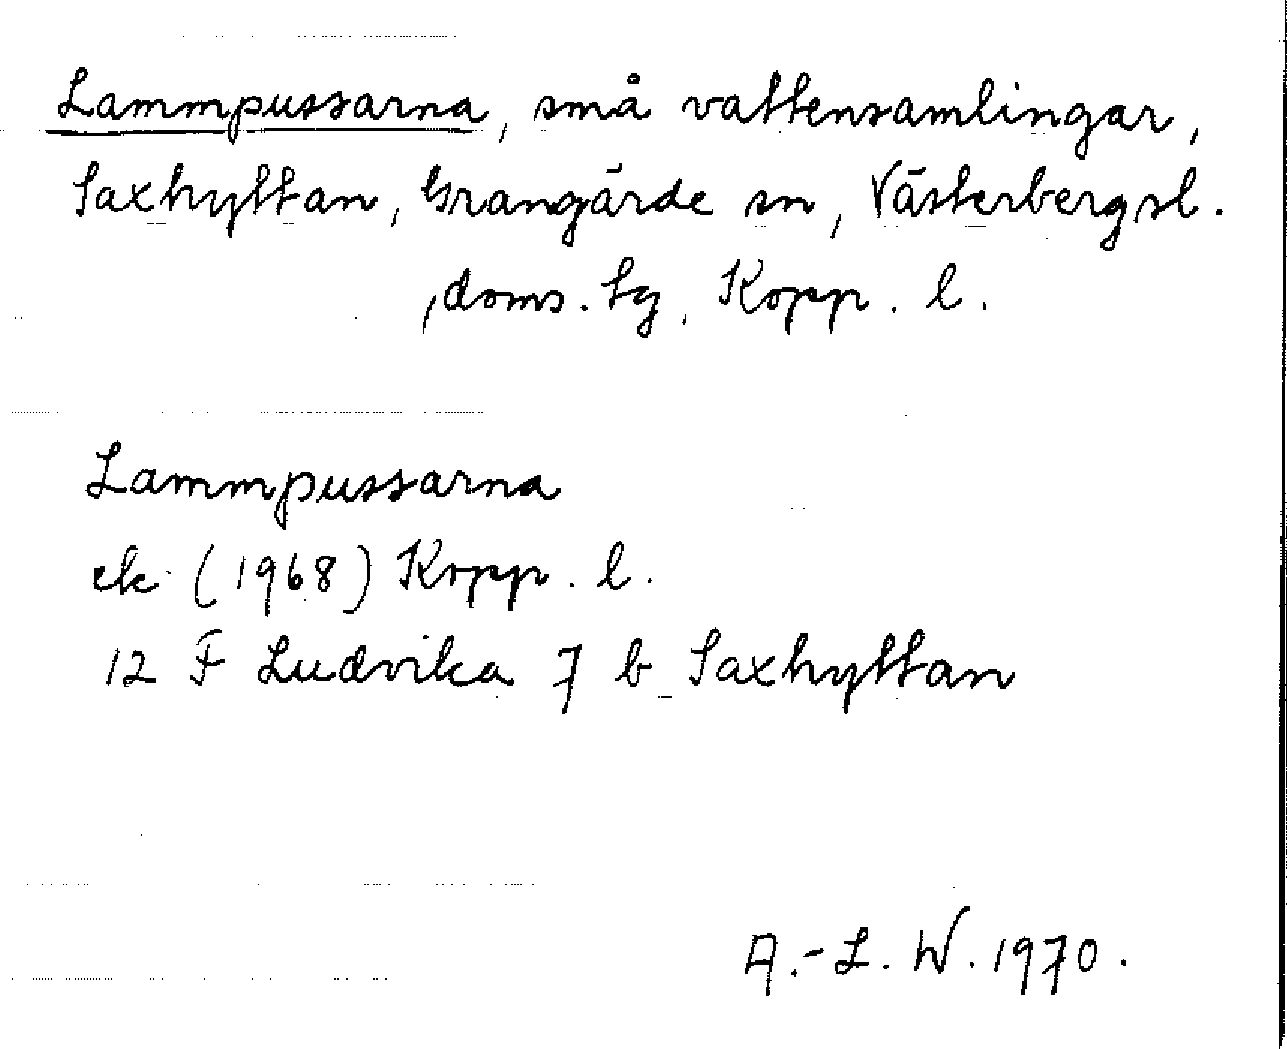 Lammpussarna, små vattensamlingar,
Saxhyttan, Grangärde sn, Västerbergsl.
, doms. tg, Kopp. l.
Lammpussarna
ek (1968) Kopp. l.
12 F Ludvika 7 b Saxhyttan
A.-L. W. 1970.